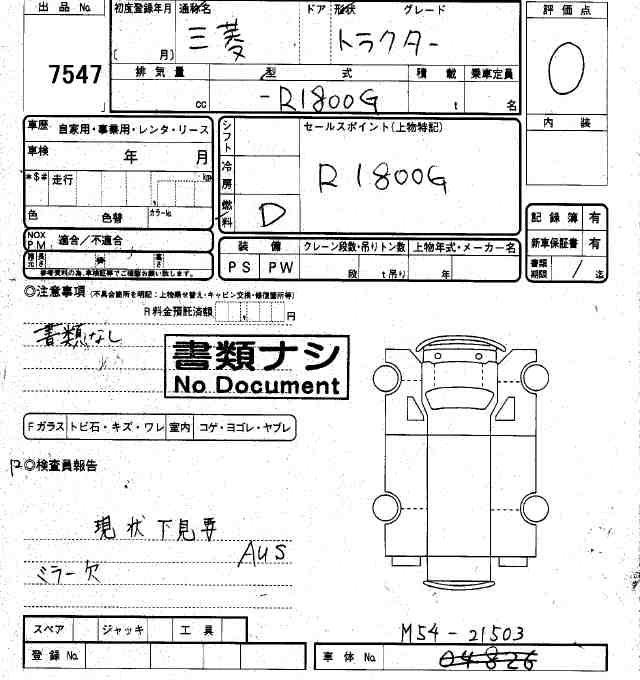 出品 No. 初度登録年月 通称名 ドア 形状 グレード 評価点
三菱 トラクター
〔 月〕 0
7547 排気量 型式 積載 乗車定員
cc -R1800G t 名
車歴 自家用・事業用・レンタ・リース シフト セールスポイント(上物特記) 内装
車検 年 月 冷房 R1800G
*$# 走行 km
色 色替 カラーNo. 燃料 D 記録簿 有
NOX PM 適合/不適合 装備 クレーン段数・吊りトン数 上物年式・メーカー名 新車保証書 有
PS PW 段 t吊り 年 書類期限 / 迄
参考資料の為、車検証等でご確認お願い致します。
◎注意事項 (不具合箇所を明記：上物乗せ替え・キャビン交換・修復箇所等)
R料金預託済額 円
書類なし
書類ナシ
No Document
Fガラス トビ石・キズ・ワレ 室内 コゲ・ヨゴレ・ヤブレ
◎検査員報告
現状下見要
AUS
ミラー欠
スペア ジャッキ 工具
M54-21503
登録 No. 車体 No. 04826